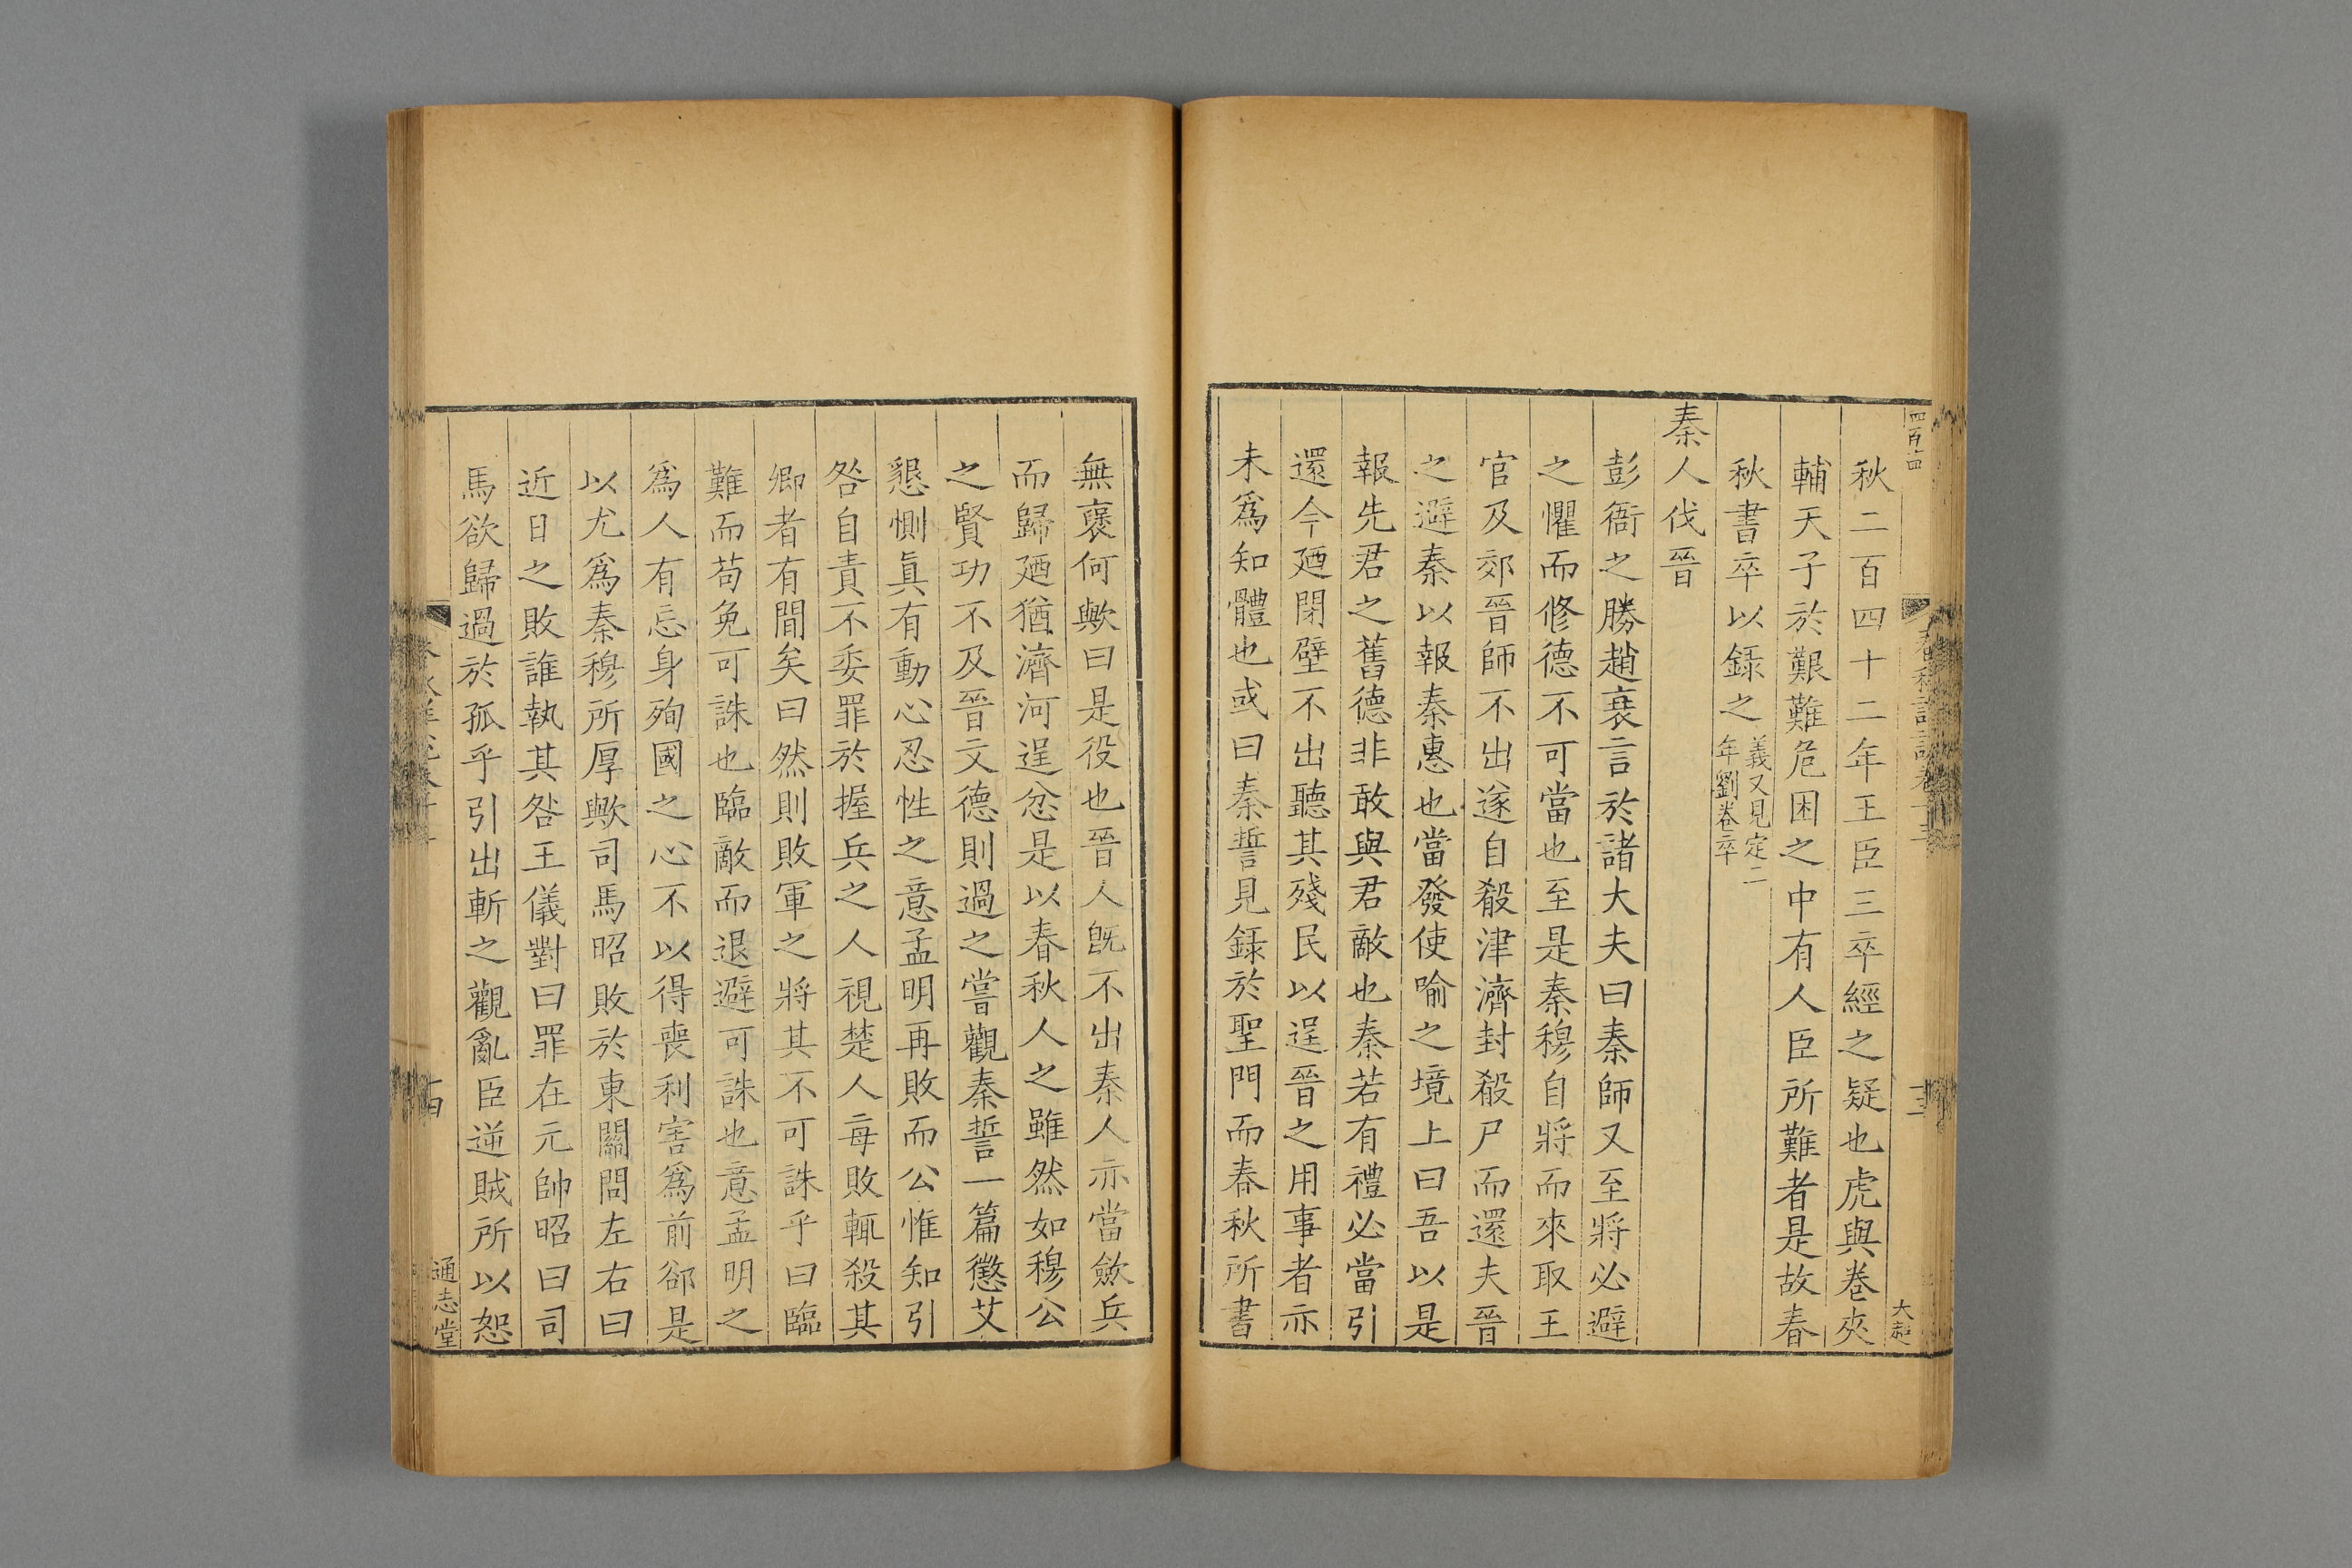 秋二百四十二年王臣三卒經之疑也虎與卷夾
輔天子於艱難危困之中有人臣所難者是故春
秋書卒以録之義又見定二
年劉卷卒
秦人伐晉
彭衙之勝趙衰言於諸大夫曰秦師又至將必避
之懼而修德不可當也至是秦穆自將而來取王
官及郊晉師不出遂自殽津濟封殽尸而還夫晉
之避秦以報秦惠也當發使喻之境上曰吾以是
報先君之舊德非敢與君敵也秦若有禮必當引
還今廼閉壁不出聽其殘民以逞晉之用事者亦
未爲知體也或曰秦誓見録於聖門而春秋所書
無襃何歟曰是役也晉人旣不出秦人亦當斂兵
而歸廼猶濟河逞忿是以春秋人之雖然如穆公
之賢功不及晉文德則過之嘗觀秦誓一篇懲艾
懇惻眞有動心忍性之意孟明再敗而公惟知引
咎自責不委罪於握兵之人視楚人每敗輒殺其
卿者有間矣曰然則敗軍之將其不可誅乎曰臨
難而苟免可誅也臨敵而退避可誅也意孟明之
爲人有忘身殉國之心不以得喪利害爲前郤是
以尤爲秦穆所厚歟司馬昭敗於東關問左右曰
近日之敗誰執其咎王儀對曰罪在元帥昭曰司
馬欲歸過於孤乎引出斬之觀亂臣逆賊所以恕
通志堂